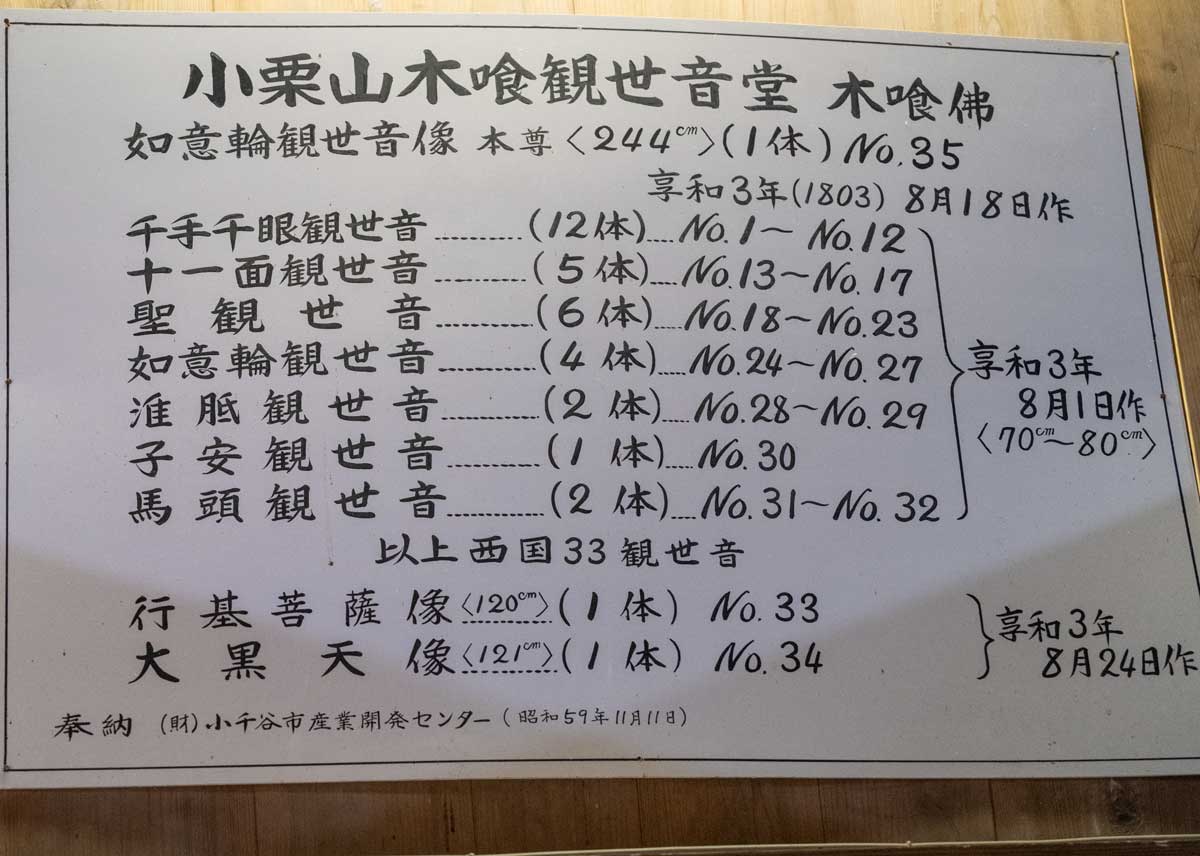 小栗山木喰観世音堂 木喰佛
如意輪観世音像 本尊〈244cm〉(1体) No.35
享和3年(1803) 8月18日作
千手千眼観世音………(12体)…No.1〜No.12
十一面観世音………(5体)…No.13〜No.17
聖観世音………(6体)…No.18〜No.23
如意輪観世音………(4体)…No.24〜No.27
淮胝観世音………(2体)…No.28〜No.29
子安観世音………(1体)…No.30
馬頭観世音………(2体)…No.31〜No.32
享和3年
8月1日作
〈70cm〜80cm〉
以上西国33観世音
行基菩薩像〈120cm〉(1体) No.33
大黒天像〈121cm〉(1体) No.34
享和3年
8月24日作
奉納 (財)小千谷市産業開発センター(昭和59年11月11日)